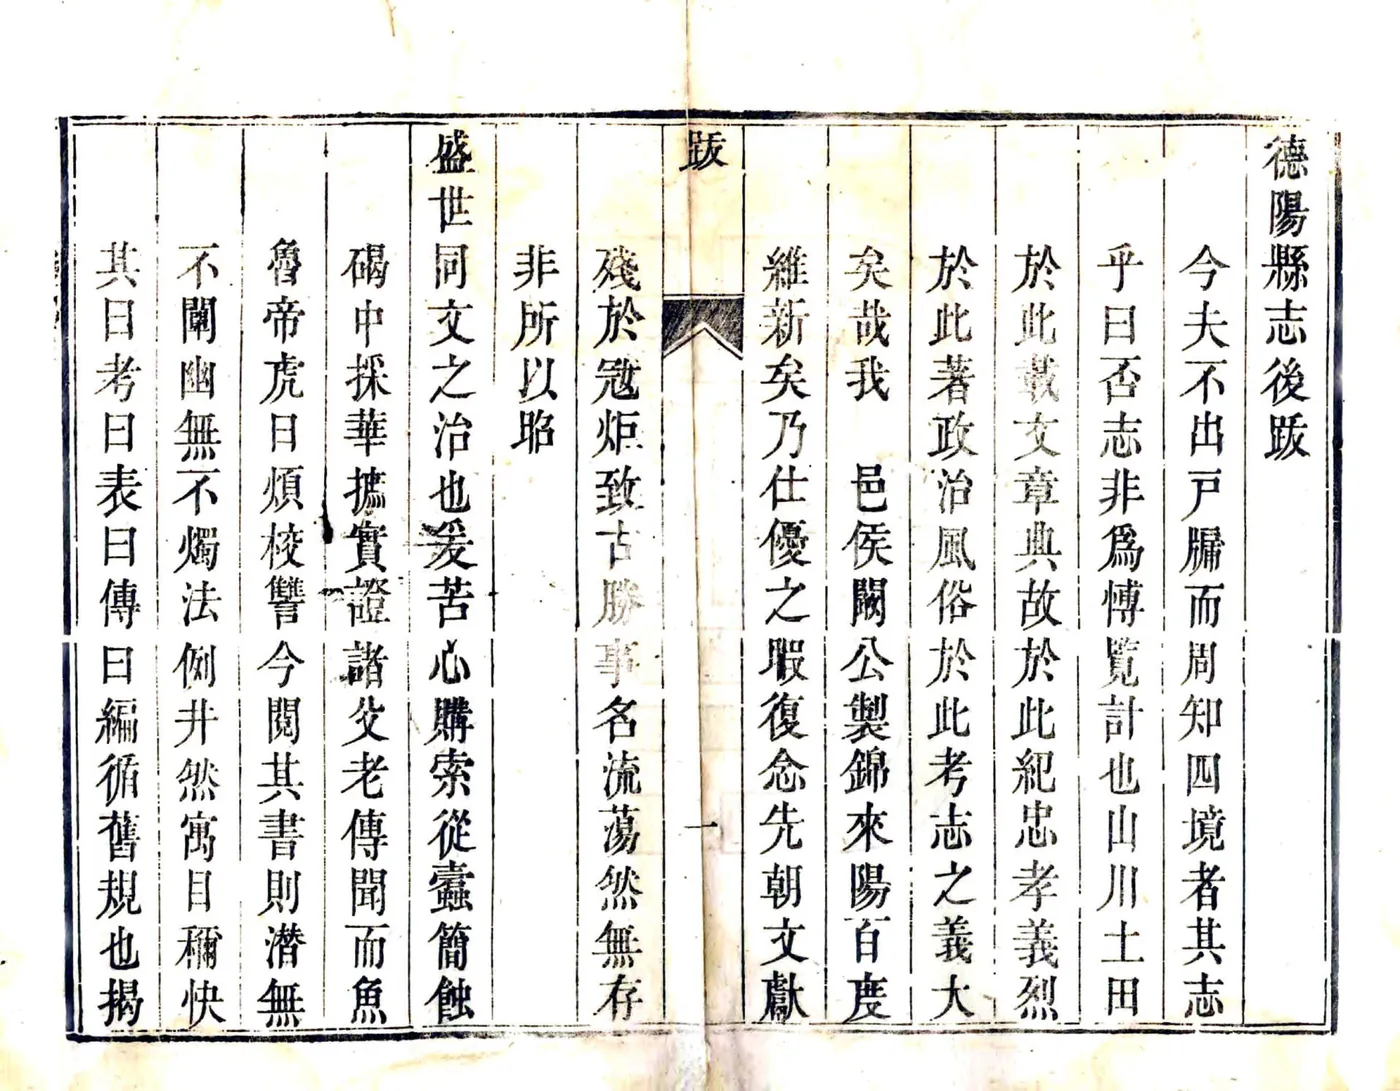 德陽縣志後跋
今夫不出戸牖而周知四境者其志
乎曰否志非爲愽覽計也山川土田
於此載文章典故於此紀忠孝義烈
於此著政治風俗於此考志之義大
矣哉我　邑侯闞公製錦來陽百度
維新矣乃仕優之暇復念先朝文獻
跋
一
殘於冦炬致古勝事名流蕩然無存
非所以昭
盛世同文之治也爰苦心購索從蠹簡蝕
碣中採華摭實證諸父老傳聞而魚
魯帝虎日煩校讐今閱其書則潜無
不闡幽無不燭法例井然寓目稱快
其曰考曰表曰傳曰編循舊規也揭